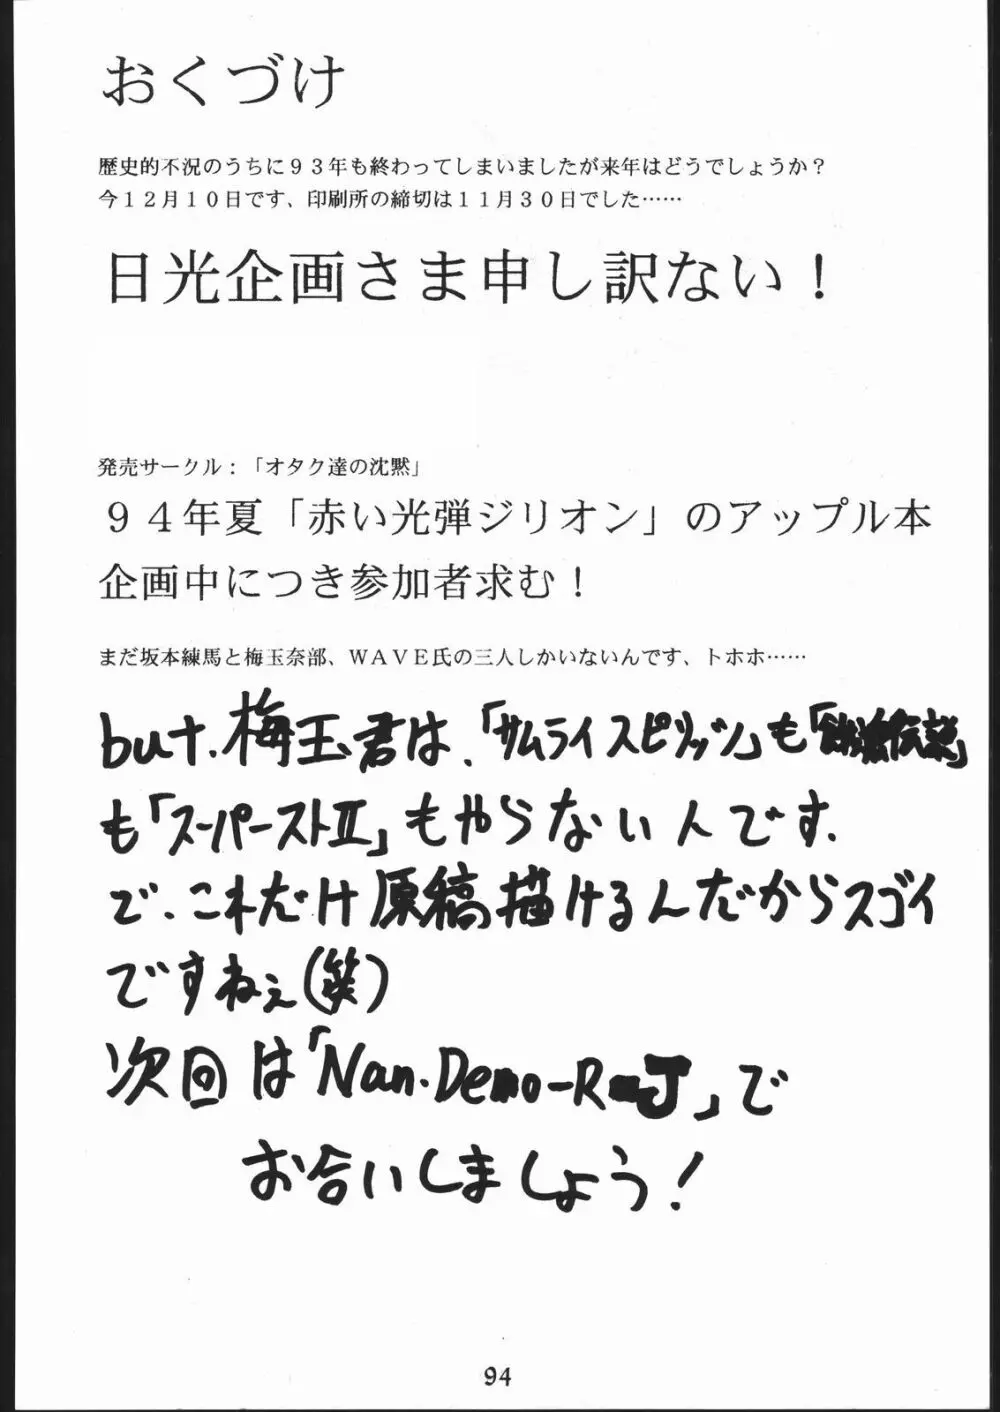 おくづけ
歴史的不況のうちに９３年も終わってしまいましたが来年はどうでしょうか？
今１２月１０日です、印刷所の締切は１１月３０日でした……
日光企画さま申し訳ない！
発売サークル：「オタク達の沈黙」
９４年夏「赤い光弾ジリオン」のアップル本
企画中につき参加者求む！
まだ坂本練馬と梅玉奈部、ＷＡＶＥ氏の三人しかいないんです、トホホ……
but.梅玉君は、「サムライスピリッツ」も「餓狼伝説」
も「スーパーストⅡ」もやらない人です.
で、これだけ原稿描けるんだからスゴイ
ですねぇ(笑)
次回は「Nan.Demo-R J」で
お合いしましょう!
94